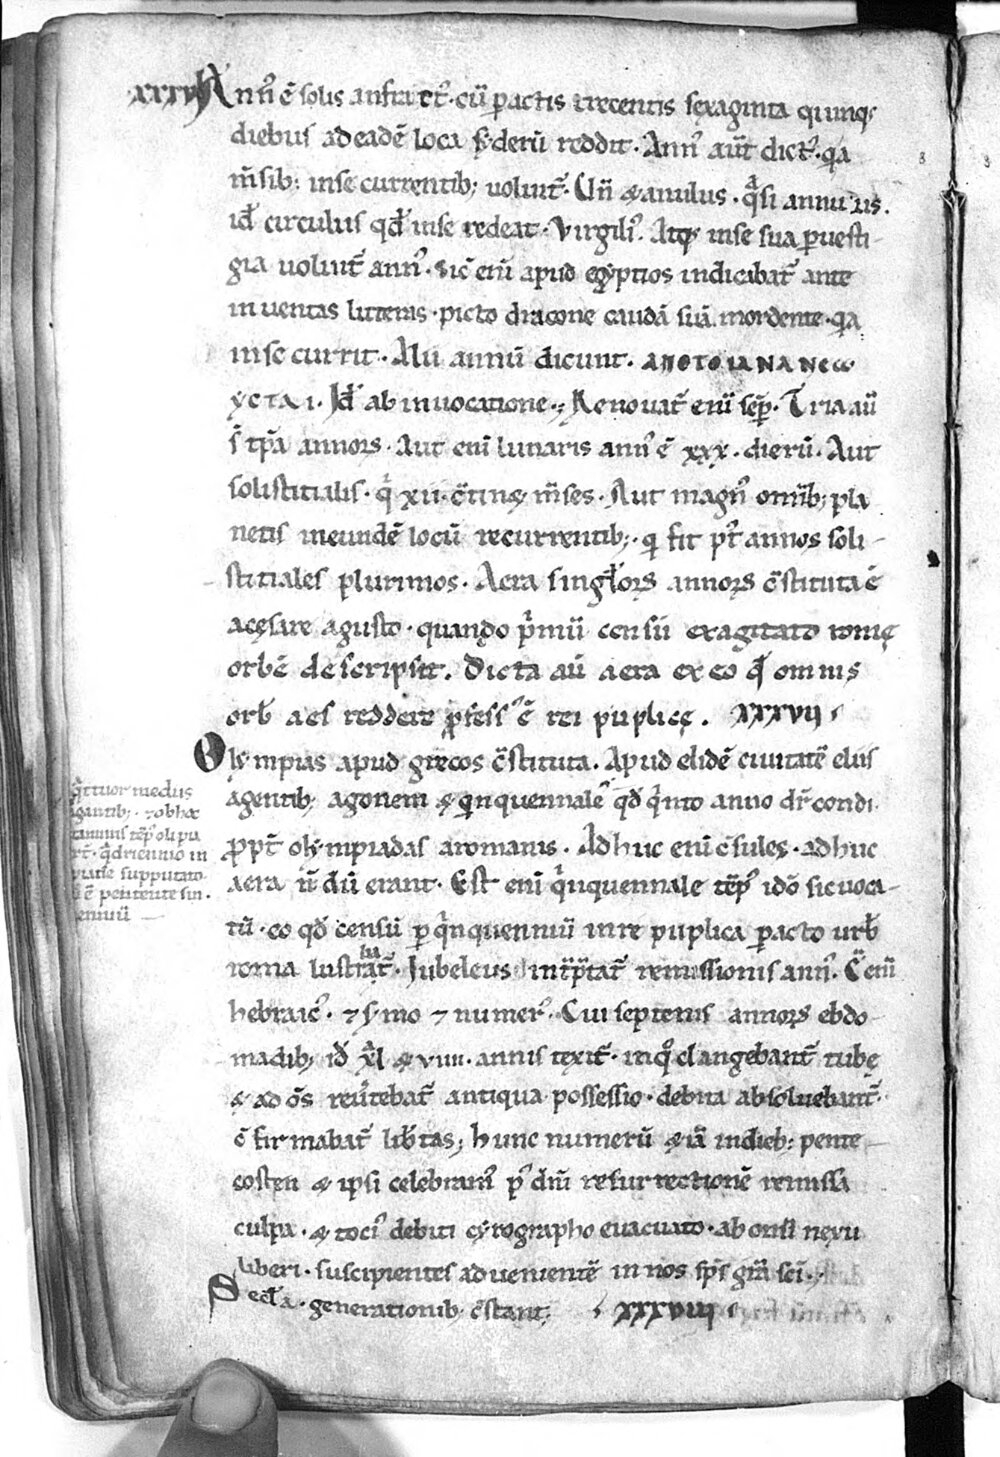 XXXVI Ann᷒ ē solis anfractꝰ· cū ꝑactis trecentis sexaginta quinq;
diebus ad eadē loca siderū reddit· Annꝰ aūt dictꝰ· qa
m̄sib; in se currentib; voluit᷑· Un̄ & anulus· qͣsi annuus.
id̄ circulus qd̄ in se redeat· Virgiliꝰ. Atq; in se sua ꝑ vesti-
gia voluit᷑ annꝰ· Sic eni apud egyptios indicabat᷑ ante
inventas litteras· picto dracone caudā suā mordente· qa
in se currit· Alii annū dicunt. ΑΠΟΤΟΙΑΝΑΝΕω
ΥCΤΑΙ. Id̄ ab invocatione.; Renovat᷑ enī semꝑ· Tria aū
s̄ tp̄a annoꝝ· Aut enī lunaris annꝰ ē xxx· dierū· Aut
solistitialis· qͥ xii· ꝯtinę m̄ses· Aut magnꝰ omnib; pla
netis in eundē locū recurrentib;· qi fit pꝰt annos soli-
stitiales plurimos· Aera singl̄oꝝ annoꝝ ꝯstituta ē
a cęsare agusto· quando pͥmū censū exagitato romę
orbē descripsit. Dicta aū aera ex eo qd̄ omnis
orb̄ aes reddere ꝓfessꝰ ē rei puplicę. XXXVII
Olympias apud grecos ꝯstituta. Apud elidē civitatē elis
agentib; agonem & qinquennale qd̄ qͥnto anno dr̄ condi·
ꝓpt᷑ olympiadas a romanis· Adhuc enī ꝯsules· adhuc
aera n̄ dū erant· Est enī qͥnquennale temp᷒ idō sic voca-
tū· eo qd̄ censū ꝑ qͥnquenniū in re puplica ꝑacto urb̄
roma lustrabat᷑· Iubeleus int̄p̄tat᷑ remissionis annꝰ. Ē enī
hebraicꝰ· ⁊ s̄mo ⁊ numerꝰ· Cui septenis annoꝝ ebdo
madib; id̄ xͣl & viiii· annis texit᷑· in qͦ clangebant᷑ tubę
& ad oēs rev̄tebat᷑ antiqua possessio· debita absolvebant᷑·
ꝯfirmabat᷑ lib̄tas; hunc numerū & iā in dieb; pente
costen & ipsi celebramꝰ pꝰ dn̄i resurrectionē remissa
culpa· & tociꝰ debiti cyrographo evacuato· ab omi nexu
liberi· suscipientes advenientē in nos sp̄s grām sc̄i.·
Sęcl̄a· generationib; ꝯstant; XXXVIII
qͣttuor medius
agantib;· ⁊ ob hoc
qͣdriennio in
supputato